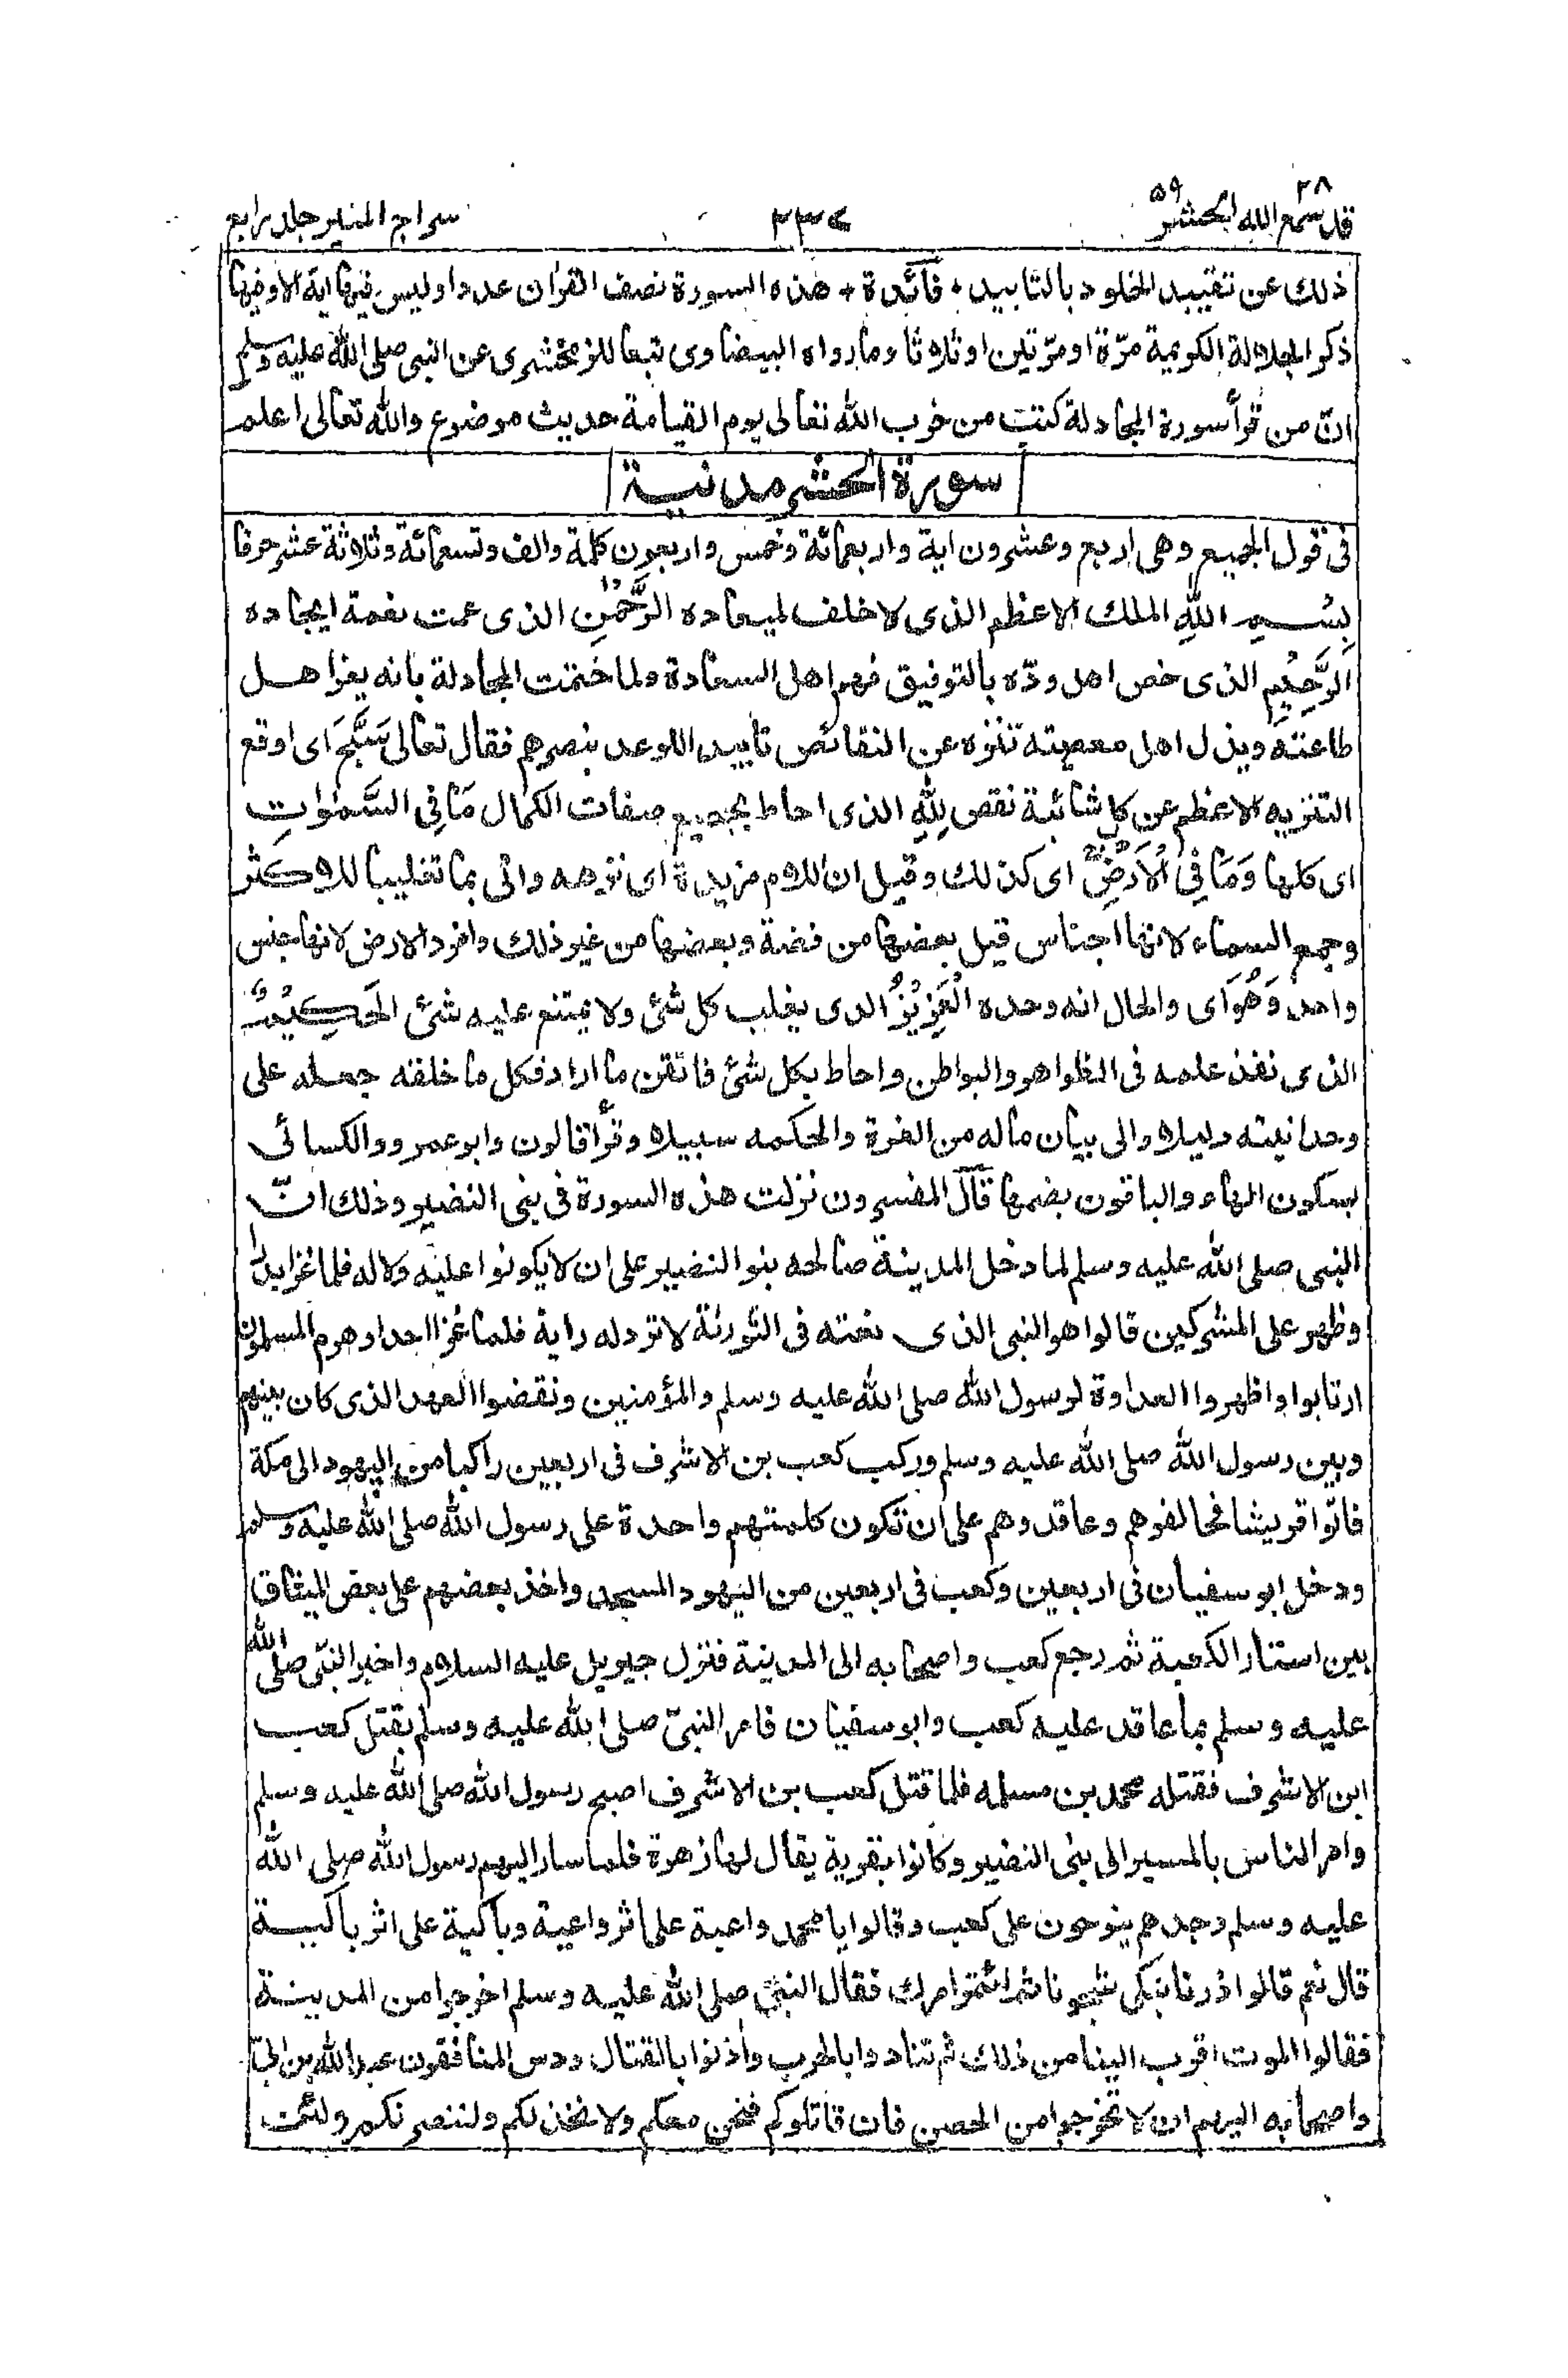 ۲۸
قد سمع الله الحشر ۵۹
۲۳۷
سراج المنير جلد رابع
ذلك عن تقييد الخلود بالتأبيد ٭ فآئدة ٭ هذه السورة نصف القرآن عددا وليس فيها اية الا وفيها
ذكر الجلالة الكريمة مرّة او مرّتين او ثلاثا وما رواه البيضاوى تبعا للزمخشرى عن النبى صلى الله عليه وسلم
انّ من قرأ سورة المجادلة كتب من حزب الله تعالى يوم القيامة حديث موضوع والله تعالى اعلم
سورة الحشر مدنية
فى قول الجميع وهى اربع وعشرون اية واربعمائة وخمس واربعون كلمة والف وتسعمائة وثلاثة عشر حرفا
بِسْمِ اللهِ الملك الاعظم الذى لا خلف لميعاده الرَّحْمٰنِ الذى عمت نعمة ايجاده
الرَّحِيْمِ الذى خص اهل ودّه بالتوفيق فهم اهل السعادة ولما ختمت المجادلة بانه يعز اهل
طاعته ويذل اهل معصيته تنزه عن النقائص تأييدا للوعد بنصرهم فقال تعالى سَبَّحَ اى اوقع
التنزيه الاعظم عن كل شائبة نقص لِلّٰهِ الذى احاط بجميع صفات الكمال مَا فِى السَّمٰوٰاتِ
اى كلها وَمَا فِى الْاَرْضِ اى كذلك وقيل ان اللام مزيدة اى نزهه واتى بما تغليبا للاكثر
وجمع السماء لانها اجناس قيل بعضها من فضة وبعضها من غير ذلك وافرد الارض لانها جنس
واحد وَهُوَ اى والحال انه وحده الْعَزِيْزُ الذى يغلب كل شئ ولا يمتنع عليه شئ الْحَكِيْمُ
الذى نفذ علمه فى الظواهر والبواطن واحاط بكل شئ فاتقن ما اراد فكل ما خلقه جعله على
وحدانيته دليلا والى بيان ماله من العزة والحكمه سبيلا وقرأ قالون وابو عمرو والكسائى
بسكون الهاء والباقون بضمها قال المفسرون نزلت هذه السورة فى بنى النضير وذلك انّ
النبى صلى الله عليه وسلم لما دخل المدينة صالحه بنو النضير على ان لا يكونوا عليه ولا له فلما غزا بدرا
وظهر على المشركين قالوا هو النبى الذى نعته فى التورٰىة لا ترد له راية فلما غزا احدا وهزم المسلمون
ارتابوا واظهروا العداوة لرسول الله صلى الله عليه وسلم والمؤمنين ونقضوا العهد الذى كان بينهم
وبين رسول الله صلى الله عليه وسلم وركب كعب بن الاشرف فى اربعين راكبا من اليهود الى مكة
فاتوا قريشا فحالفوهم وعاقدوهم على ان تكون كلمتهم واحدة على رسول الله صلى الله عليه وسلم
ودخل ابو سفيان فى اربعين وكعب فى اربعين من اليهود المسجد واخذ بعضهم على بعض الميثاق
بين استار الكعبة ثم رجع كعب واصحابه الى المدينة فنزل جبريل عليه السلام واخبر النبىّ صلى الله
عليه وسلم بما عاقد عليه كعب وابو سفيان فامر النبىّ صلى الله عليه وسلم بقتل كعب
ابن الاشرف فقتله محمد بن مسلمه فلما قتل كعب بن الاشرف اصبح رسول الله صلى الله عليه وسلم
وامر الناس بالمسير الى بنى النضير وكانوا بقرية يقال لها زهرة فلما سار اليهم رسول الله صلى الله
عليه وسلم وجدهم ينوحون على كعب وقالوا يا محمد واعية على اثر واعية وباكية على اثر باكية
قال نعم قالوا ذرنا نبكى شجونا ثم ائتمر امرك فقال النبىّ صلى الله عليه وسلم اخرجوا من المدينة
فقالوا الموت اقرب الينا من ذلك ثم تنادوا بالحرب واذنوا بالقتال ودس المنافقون عبد الله بن ابىّ
واصحابه اليهم ان لا تخرجوا من الحصن فان قاتلوكم فنحن معكم ولا نخذلكم ولننصرنكم ولئن